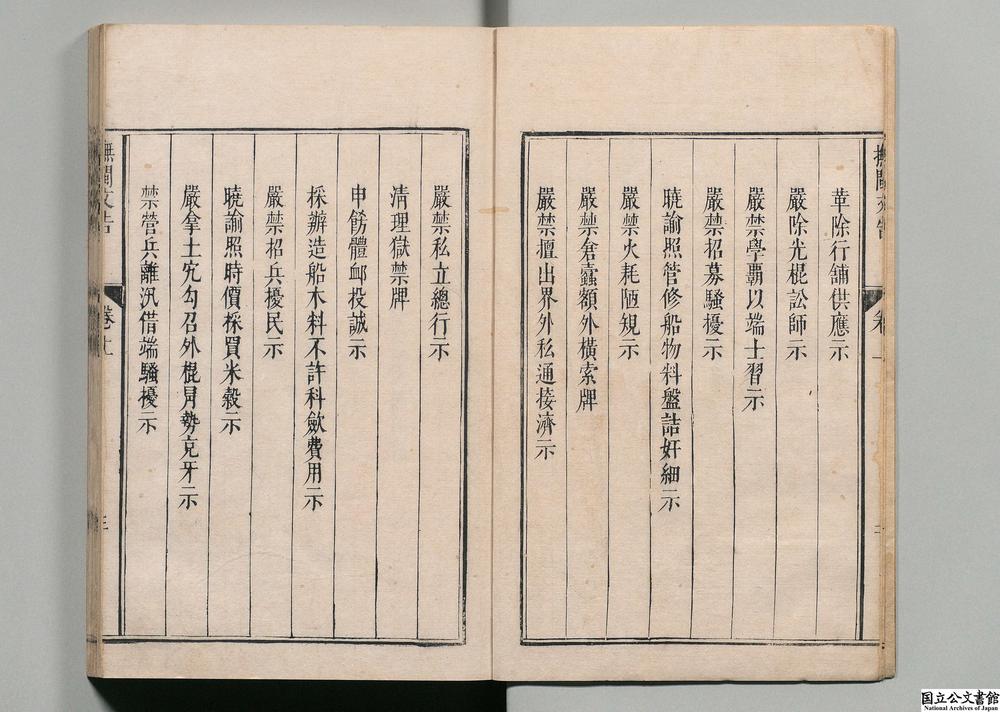 革除行舖供應示
嚴除光棍訟師示
嚴禁學覇以端士習示
嚴禁招募騷擾示
曉諭照管修船物料盤詰奸細示
嚴禁火耗陋規示
嚴禁倉蠹額外橫索牌
嚴禁擅出界外私通接濟示
嚴禁私立總行示
清理獄禁牌
申飭體卹投誠示
採辦造船木料不許科斂費用示
嚴禁招兵擾民示
曉諭照時價採買米穀示
嚴拿土宄勾召外棍冐勢克牙示
禁營兵離汛借端騷擾示
撫閩文告
卷上
三
国立公文書館
National Archives of Japan